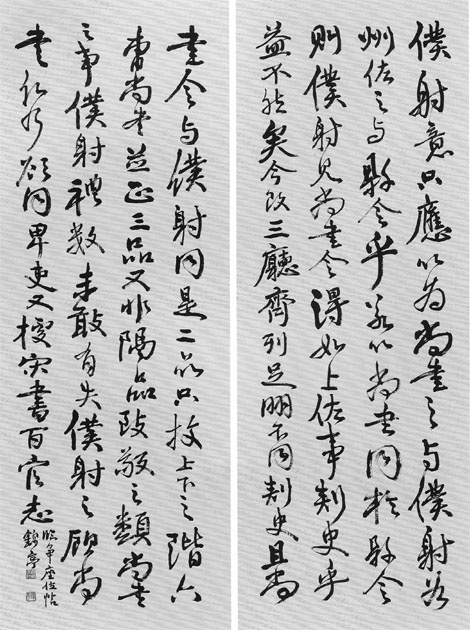 僕射意只應以為尚書之与僕射若
州佐之与縣令乎若以尚書同於縣令
則僕射見尚書令得如上佐事刺史乎
益不然矣今既三廳齊列足明不同刺史且尚
書令与僕射同是二品只校上下之階六
曹尚書並正三品又非隔品致敬之類尚書
之事僕射禮數未敢有失僕射之顧尚
書何乃欲同卑吏又據宋書百官志
臨争座位帖